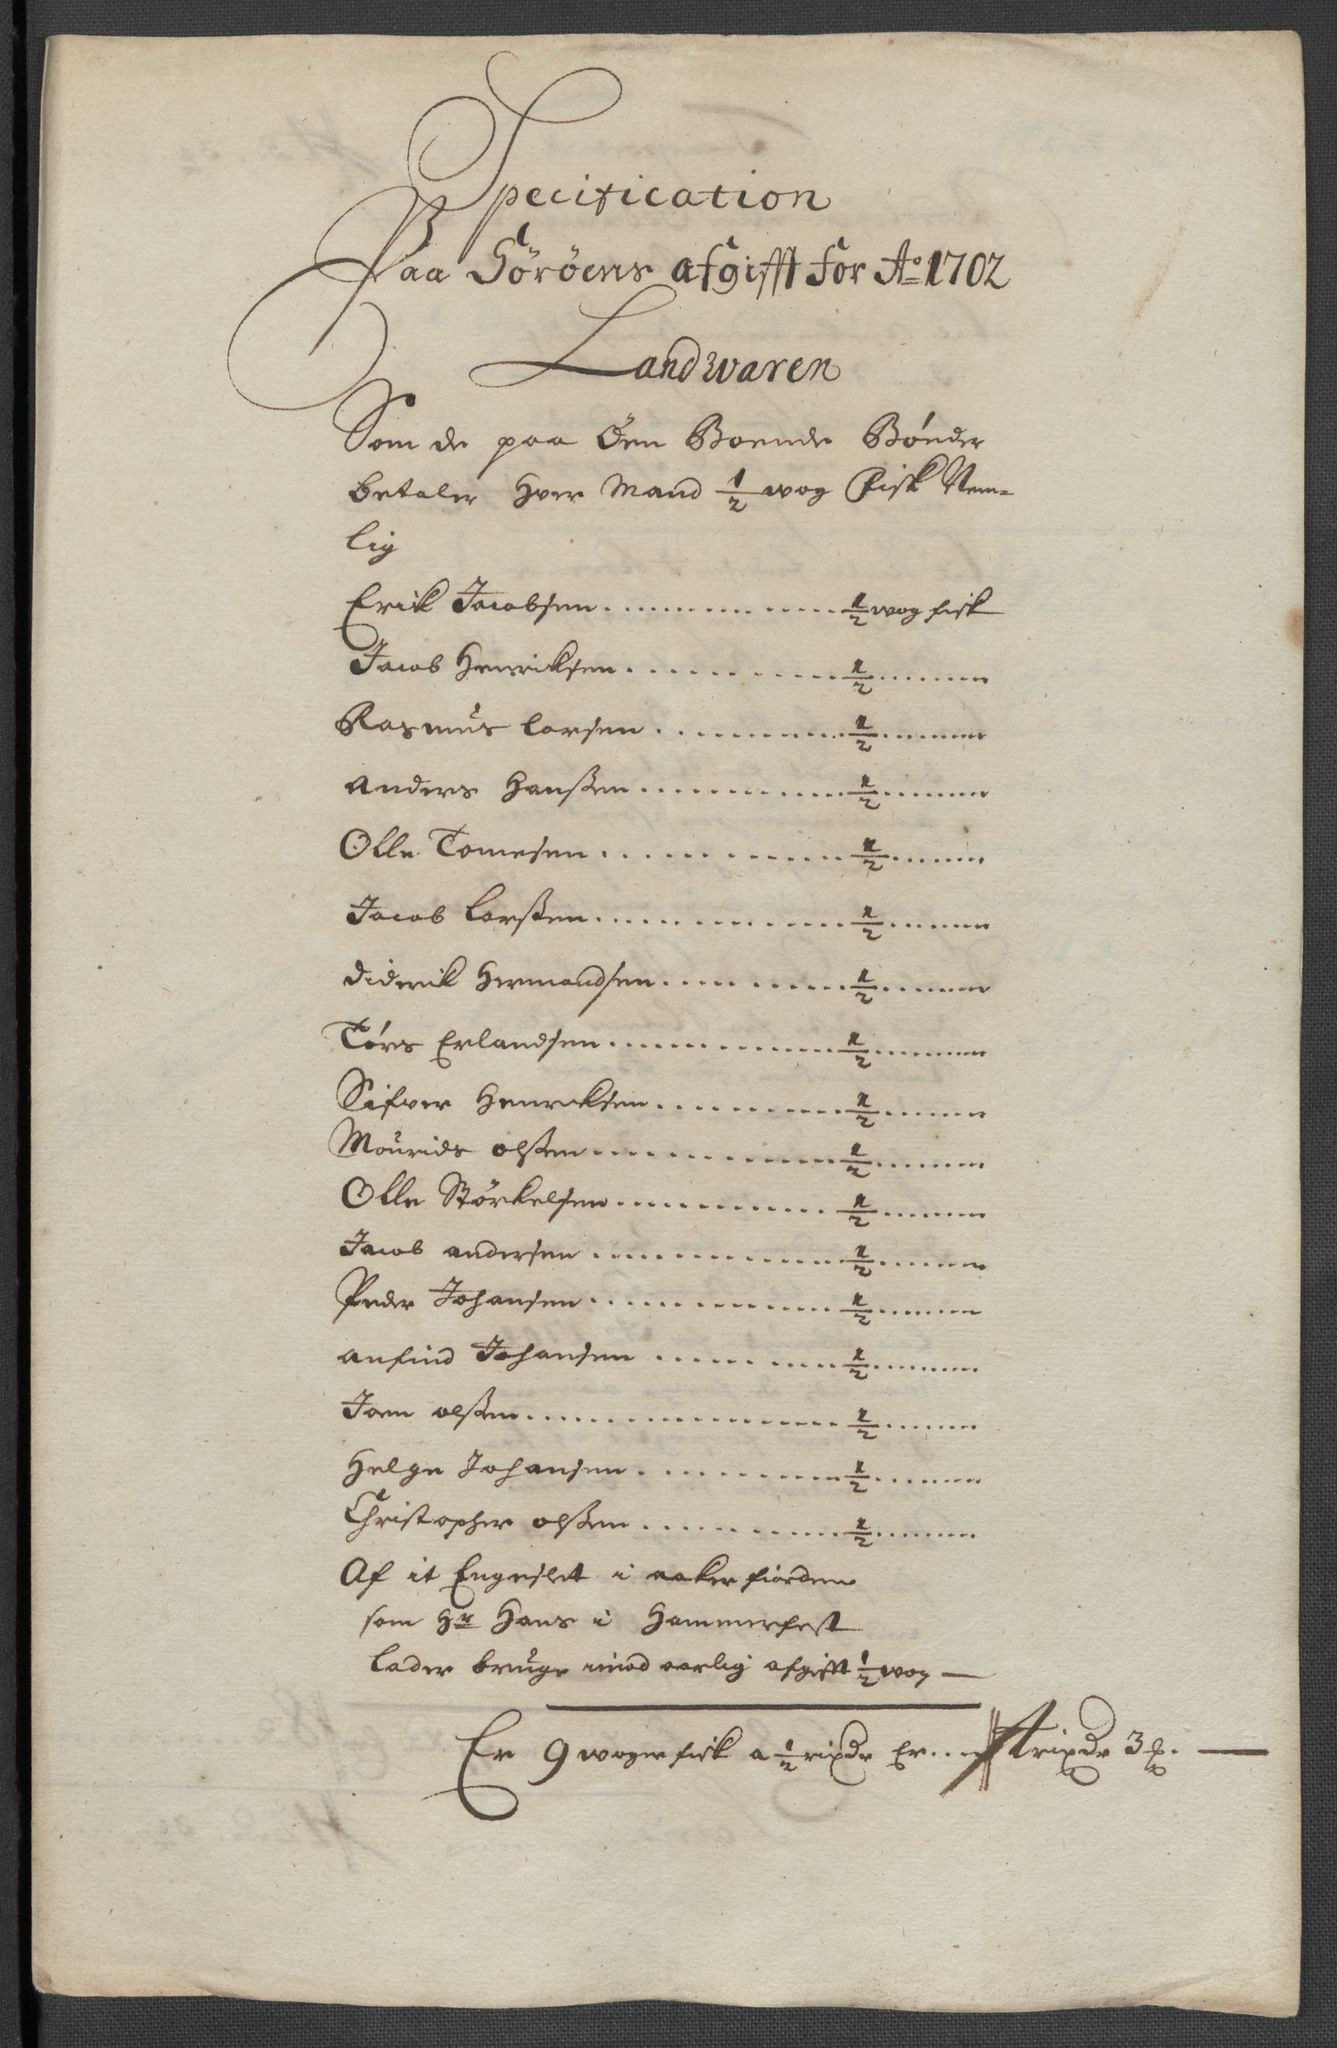 Specification
Paa Söröens afgifft for Ao 1702
Landwaren
Som de paa Öen Boende Bönder
betaler Hver Mand 1/2 wog Fisk Nem=
lig
Erik Jacobsen ........ 1/2 wog fisk
Jacob Henricksen ........ 1/2 ........
Rasmus Larsen ........ 1/2 ........
Anders Hanßen ........ 1/2 ........
Olle Tomesen ........ 1/2 ........
Jacob Larßen ........ 1/2 ........
Diderik Hermandsen ........ 1/2 ........
Törs Erlandsen ........ 1/2 ........
Sifver Henricksen ........ 1/2 ........
Mourids olßen ........ 1/2 ........
Olle Störkelsen ........ 1/2 ........
Jacob andersen ........ 1/2 ........
Peder Johansen ........ 1/2 ........
anfind Johansen ........ 1/2 ........
Joen olßen ........ 1/2 ........
Helge Johansen ........ 1/2 ........
Christopher olßen ........ 1/2 ........
Af it Engeslet i aakerfiorden
som Hr Hans i Hammerfest
lader bruge imod aarlig afgifft 1/2 wog —
Er 9 woger fisk a 1/2 rixdr Er ... rixdr 3 —